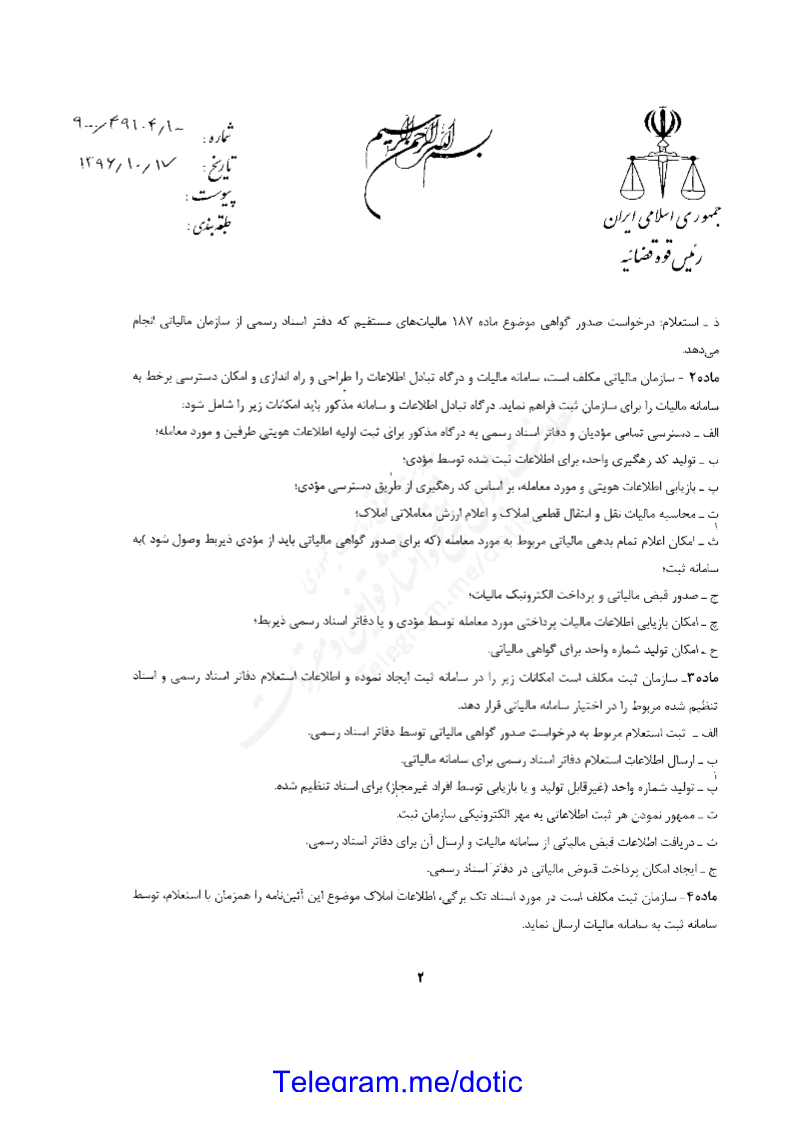 بسم الله الرحمن الرحیم
جمهوری اسلامی ایران
رئیس قوه قضائیه
شماره: ۹۰۰۰/۴۹۱۰۴/۱۰۰
تاریخ: ۱۳۹۶/۱۰/۱۷
پیوست:
طبقه‌بندی:
ذ ـ استعلام: درخواست صدور گواهی موضوع ماده ۱۸۷ مالیات‌های مستقیم که دفتر اسناد رسمی از سازمان مالیاتی انجام
می‌دهد.
ماده۲ - سازمان مالیاتی مکلف است، سامانه مالیات و درگاه تبادل اطلاعات را طراحی و راه اندازی و امکان دسترسی برخط به
سامانه مالیات را برای سازمان ثبت فراهم نماید. درگاه تبادل اطلاعات و سامانه مذکور باید امکانات زیر را شامل شود:
الف ـ دسترسی تمامی مؤدیان و دفاتر اسناد رسمی به درگاه مذکور برای ثبت اولیه اطلاعات هویتی طرفین و مورد معامله؛
ب ـ تولید کد رهگیری واحد، برای اطلاعات ثبت شده توسط مؤدی؛
پ ـ بازیابی اطلاعات هویتی و مورد معامله، بر اساس کد رهگیری از طریق دسترسی مؤدی؛
ت ـ محاسبه مالیات نقل و انتقال قطعی املاک و اعلام ارزش معاملاتی املاک؛
ث ـ امکان اعلام تمام بدهی مالیاتی مربوط به مورد معامله (که برای صدور گواهی مالیاتی باید از مؤدی ذیربط وصول شود )به
سامانه ثبت؛
ج ـ صدور قبض مالیاتی و پرداخت الکترونیک مالیات؛
چ ـ امکان بازیابی اطلاعات مالیات پرداختی مورد معامله توسط مؤدی و یا دفاتر اسناد رسمی ذیربط؛
ح ـ امکان تولید شماره واحد برای گواهی مالیاتی.
ماده۳ـ سازمان ثبت مکلف است امکانات زیر را در سامانه ثبت ایجاد نموده و اطلاعات استعلام دفاتر اسناد رسمی و اسناد
تنظیم شده مربوط را در اختیار سامانه مالیاتی قرار دهد.
الف ـ ثبت استعلام مربوط به درخواست صدور گواهی مالیاتی توسط دفاتر اسناد رسمی.
ب ـ ارسال اطلاعات استعلام دفاتر اسناد رسمی برای سامانه مالیاتی.
پ ـ تولید شماره واحد (غیرقابل تولید و یا بازیابی توسط افراد غیرمجاز) برای اسناد تنظیم شده.
ت ـ ممهور نمودن هر ثبت اطلاعاتی به مهر الکترونیکی سازمان ثبت.
ث ـ دریافت اطلاعات قبض مالیاتی از سامانه مالیات و ارسال آن برای دفاتر اسناد رسمی.
ج ـ ایجاد امکان پرداخت قبوض مالیاتی در دفاتر اسناد رسمی.
ماده۴- سازمان ثبت مکلف است در مورد اسناد تک برگی، اطلاعات املاک موضوع این آئین‌نامه را همزمان با استعلام، توسط
سامانه ثبت به سامانه مالیات ارسال نماید.
۲
Telegram.me/dotic